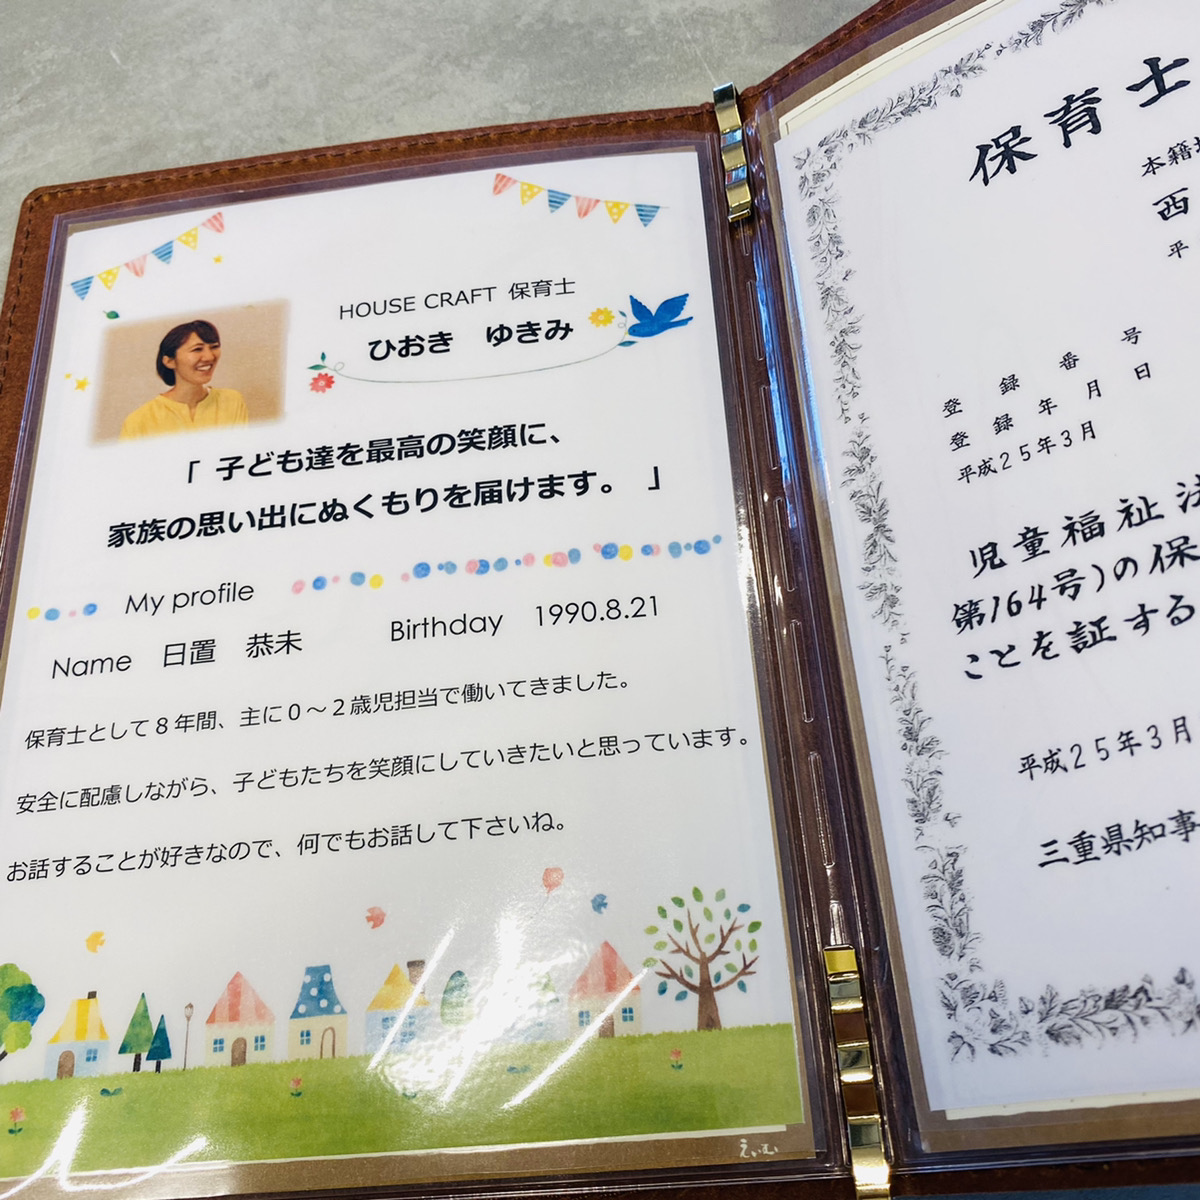 HOUSE CRAFT 保育士
ひおき ゆきみ
「 子ども達を最高の笑顔に、
家族の思い出にぬくもりを届けます。 」
My profile
Name 日置 恭未 Birthday 1990.8.21
保育士として8年間、主に0～2歳児担当で働いてきました。
安全に配慮しながら、子どもたちを笑顔にしていきたいと思っています。
お話することが好きなので、何でもお話して下さいね。
えいむ
保育士
本籍地
西
平
登録番号
登録年月日
平成25年3月
児童福祉法
第164号)の保
ことを証する
平成25年3月
三重県知事